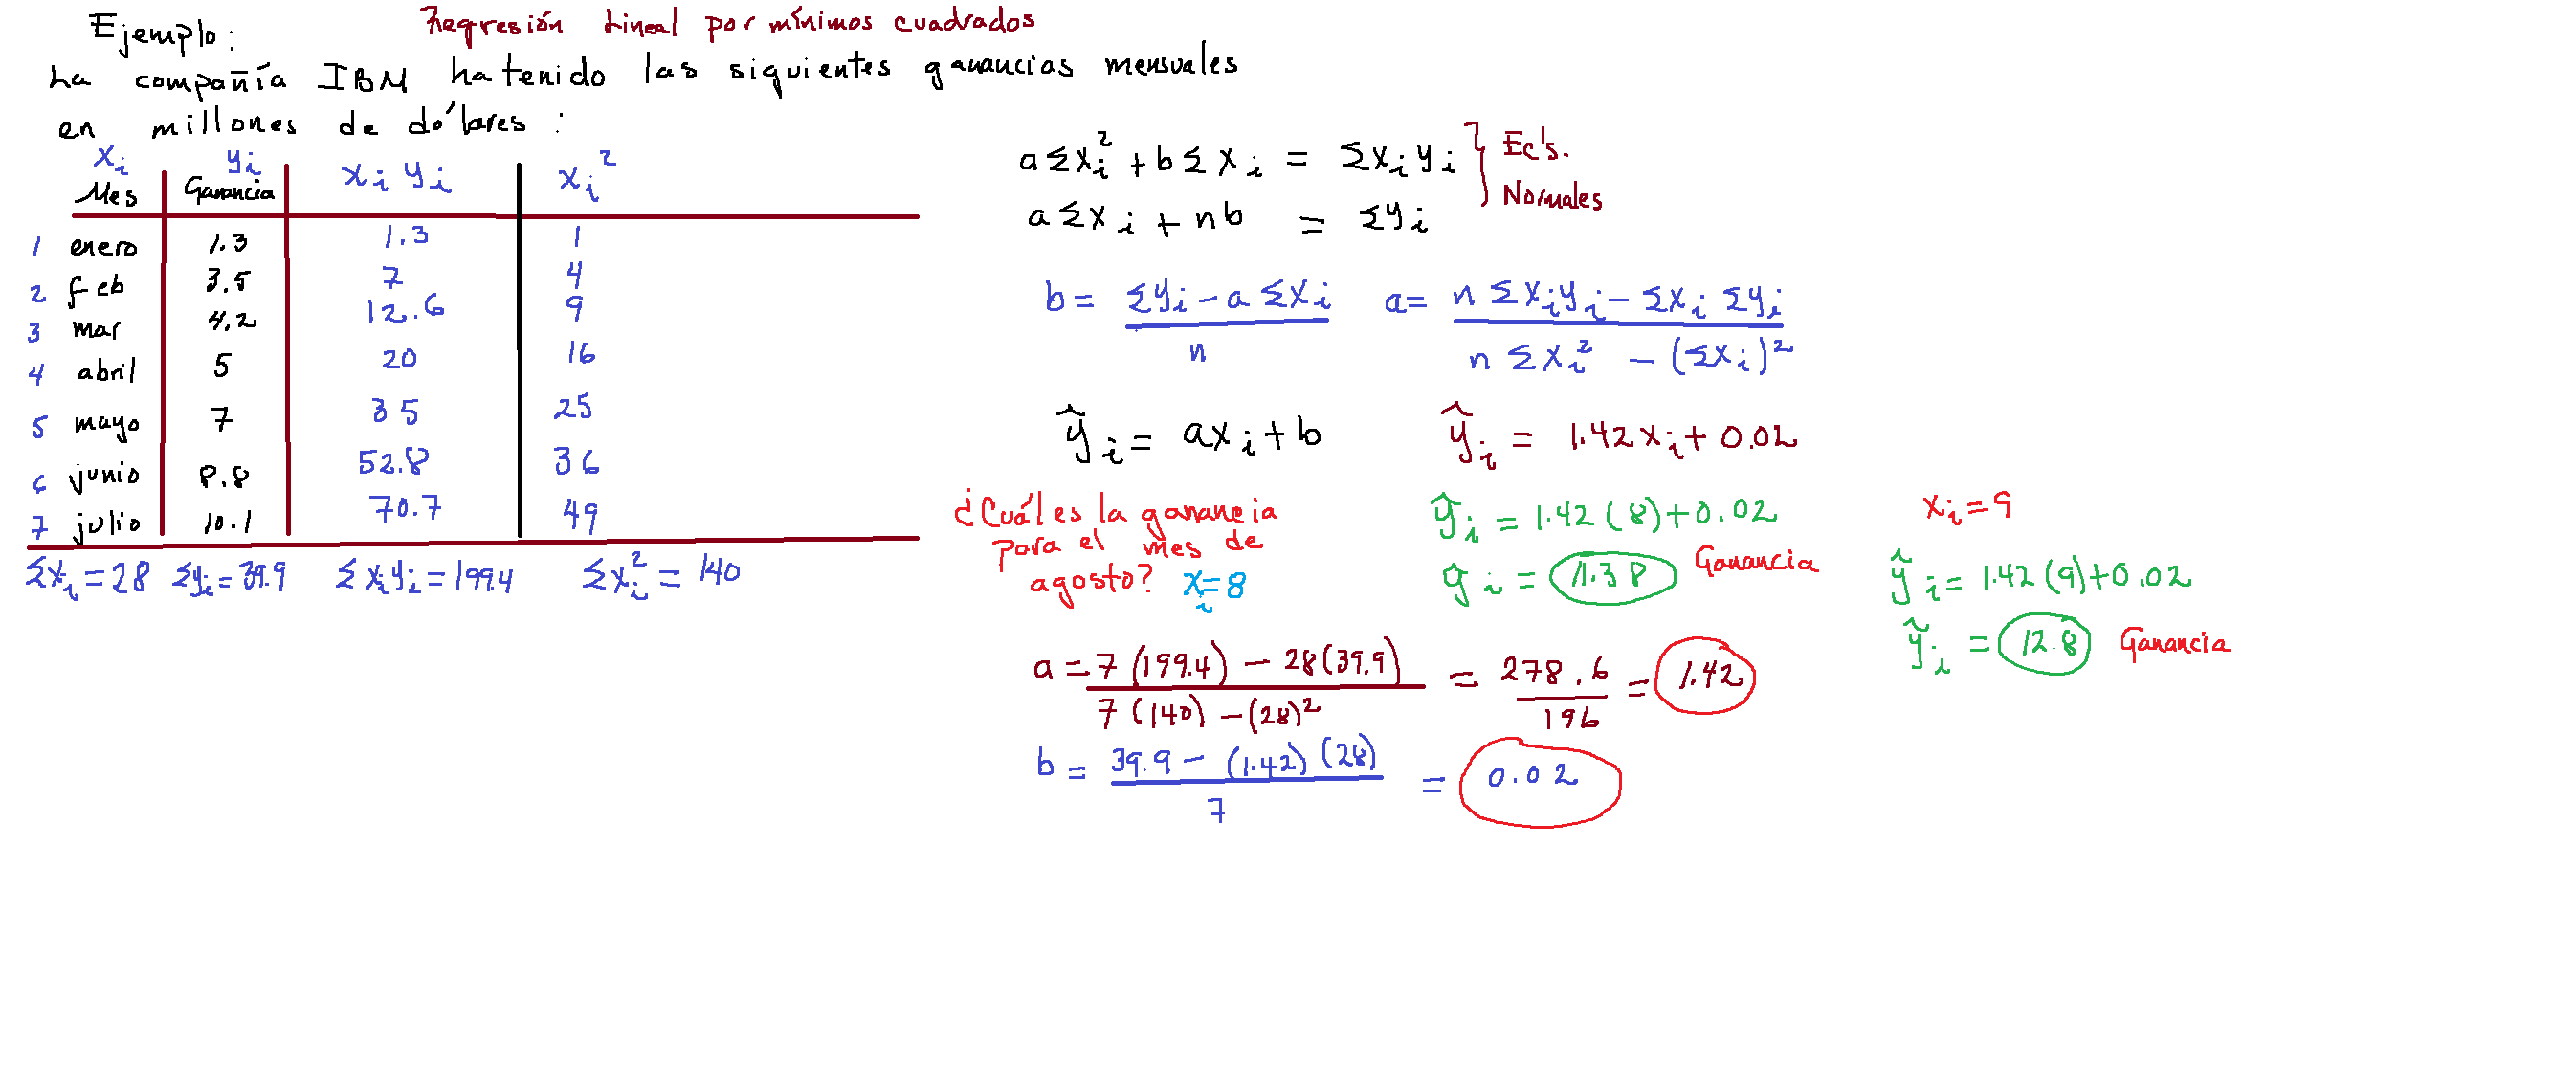 Regresión Lineal por mínimos cuadrados
Ejemplo:
La compañía IBM ha tenido las siguientes ganancias mensuales
en millones de dólares :
xᵢ yᵢ xᵢ yᵢ xᵢ²
Mes Ganancia
1 enero 1.3 1.3 1
2 feb 3.5 7 4
3 mar 4.2 12.6 9
4 abril 5 20 16
5 mayo 7 35 25
6 junio 8.8 52.8 36
7 julio 10.1 70.7 49
Σxᵢ = 28 Σyᵢ = 39.9 Σxᵢyᵢ = 199.4 Σxᵢ² = 140
aΣxᵢ² + bΣxᵢ = Σxᵢyᵢ } Ec's.
Normales
aΣxᵢ + nb = Σyᵢ
b = (Σyᵢ - aΣxᵢ) / n a = (nΣxᵢyᵢ - Σxᵢ Σyᵢ) / (nΣxᵢ² - (Σxᵢ)²)
ŷᵢ = axᵢ + b ŷᵢ = 1.42xᵢ + 0.02
¿Cuál es la ganancia
para el mes de
agosto? xᵢ = 8
ŷᵢ = 1.42 (8) + 0.02
ŷᵢ = 11.38 Ganancia
xᵢ = 9
ŷᵢ = 1.42 (9) + 0.02
ŷᵢ = 12.8 Ganancia
a = (7 (199.4) - 28(39.9)) / (7 (140) - (28)²) = 278.6 / 196 = 1.42
b = (39.9 - (1.42) (28)) / 7 = 0.02